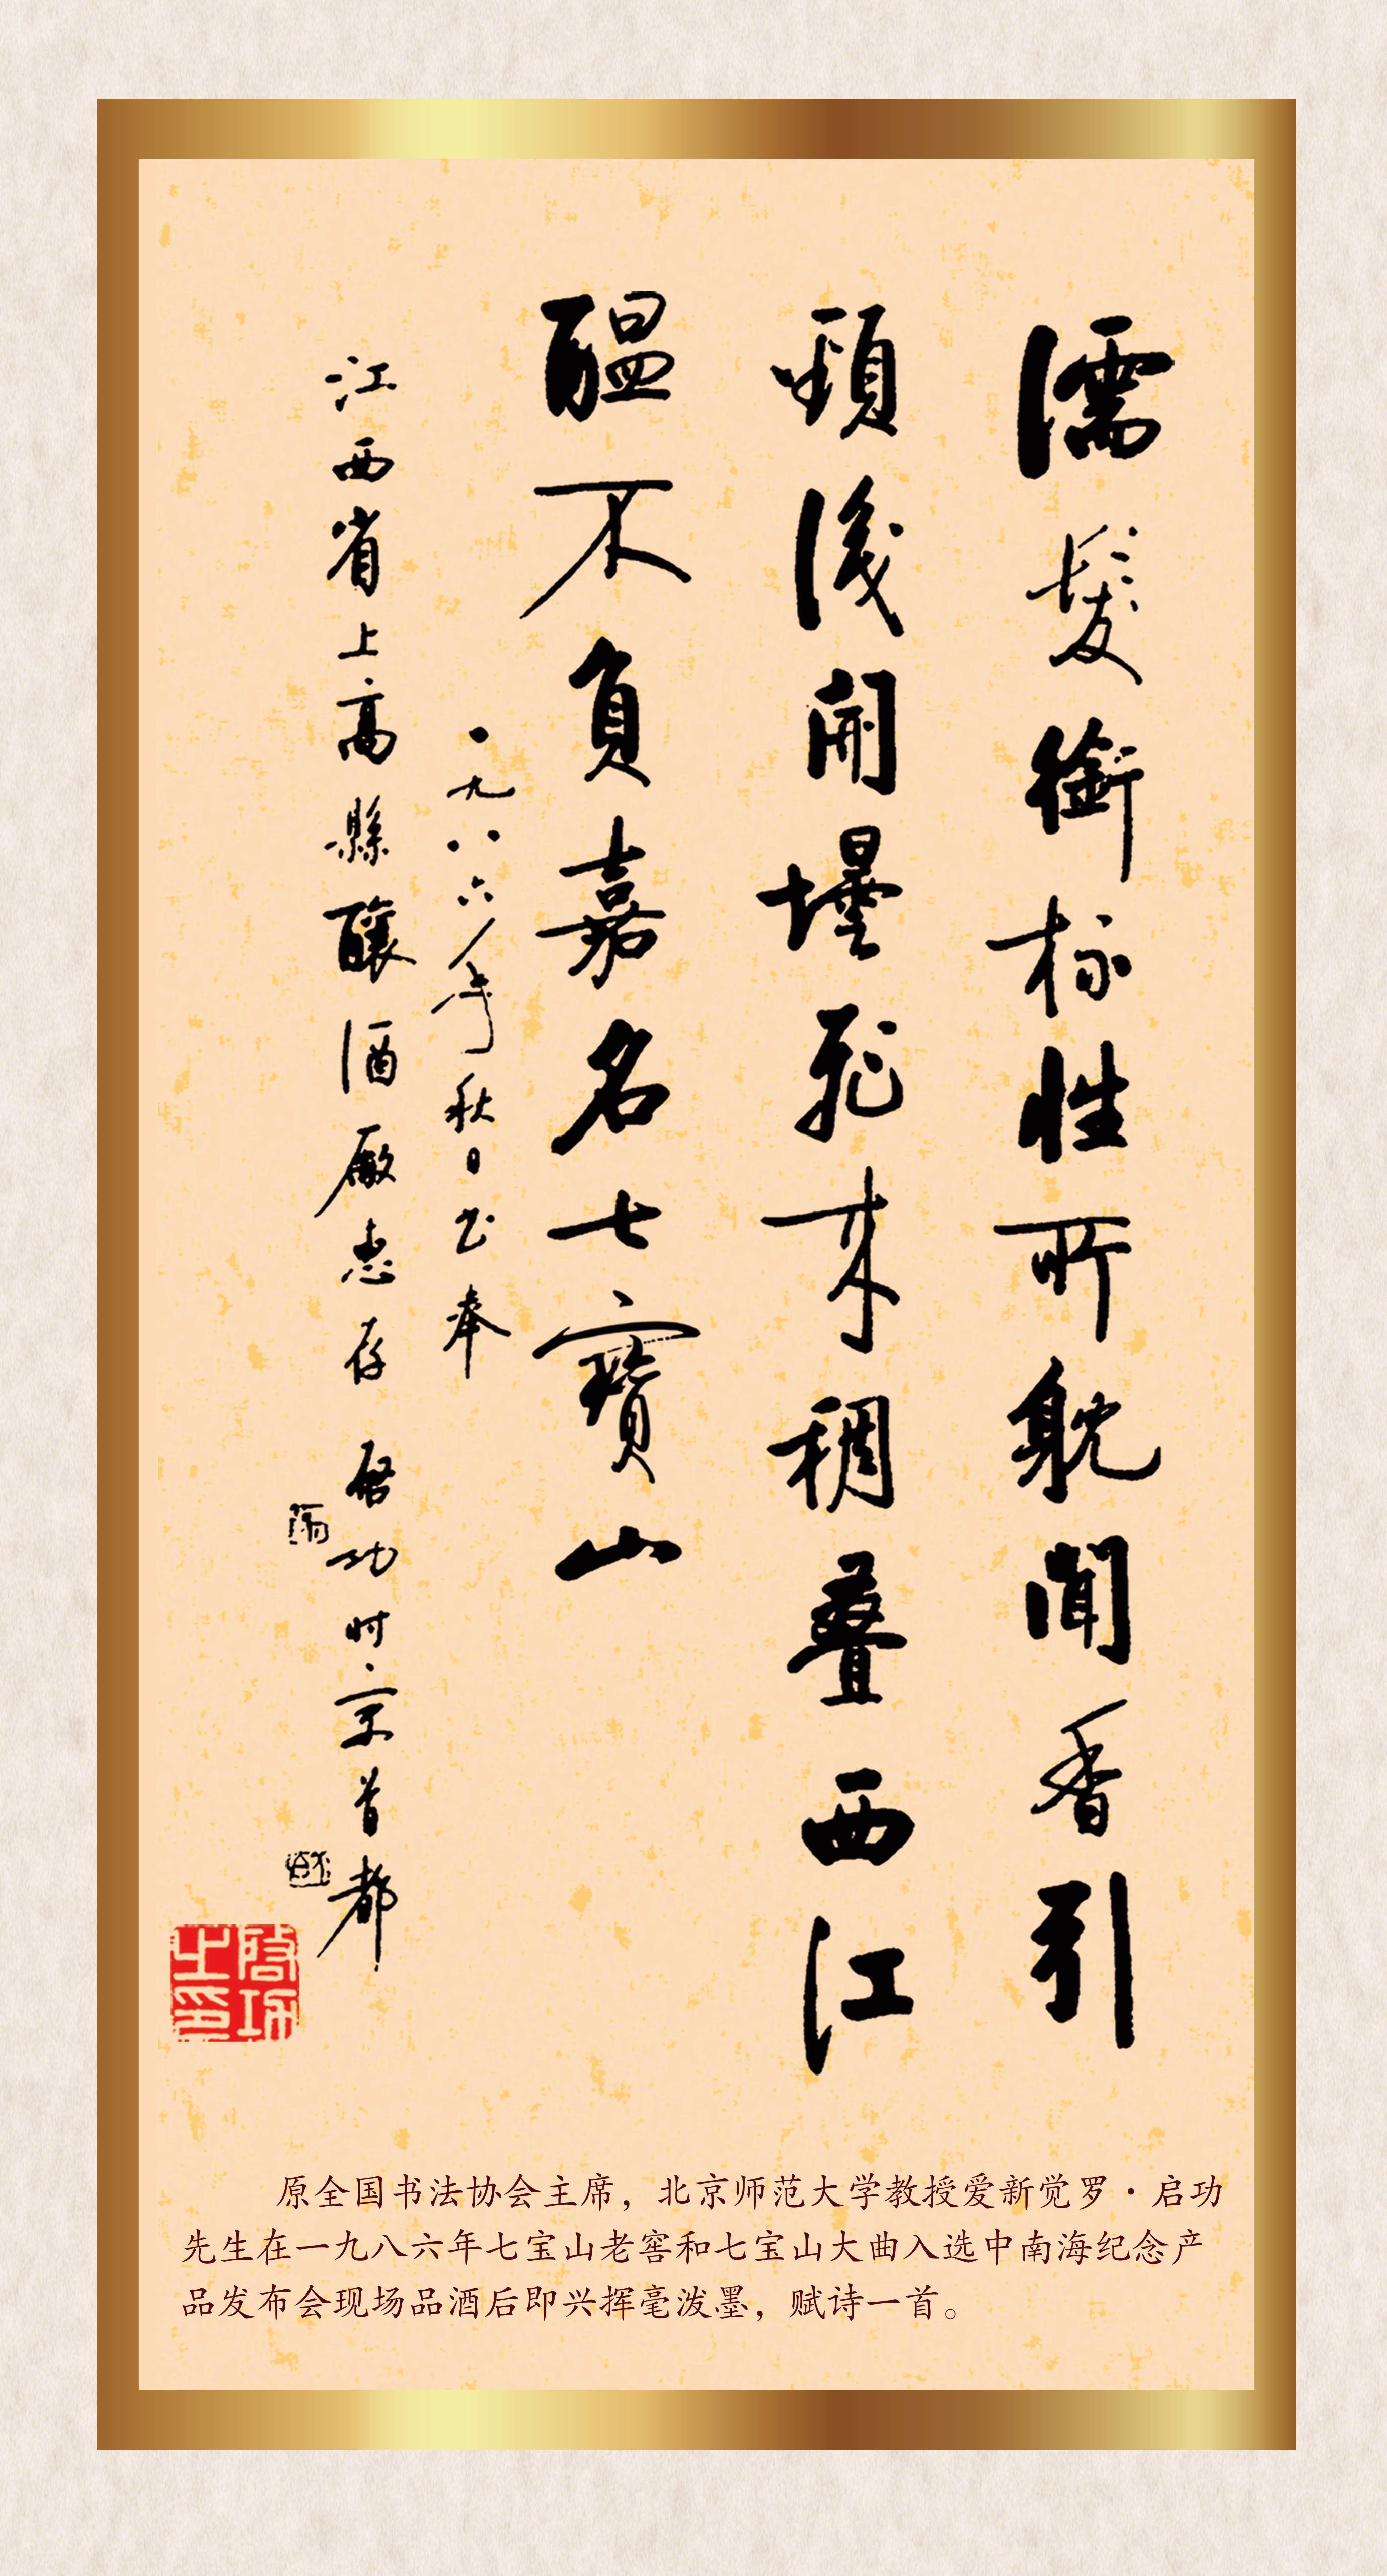 濡髮銜杯性所躭聞香引
頸後開壜飛来稠疊西江
醖不負嘉名七寶山
一九八六年秋日书奉
江西省上高縣釀酒厰惠存 启功时京首都
启功之印
原全国书法协会主席，北京师范大学教授爱新觉罗·启功
先生在一九八六年七宝山老窖和七宝山大曲入选中南海纪念产
品发布会现场品酒后即兴挥毫泼墨，赋诗一首。